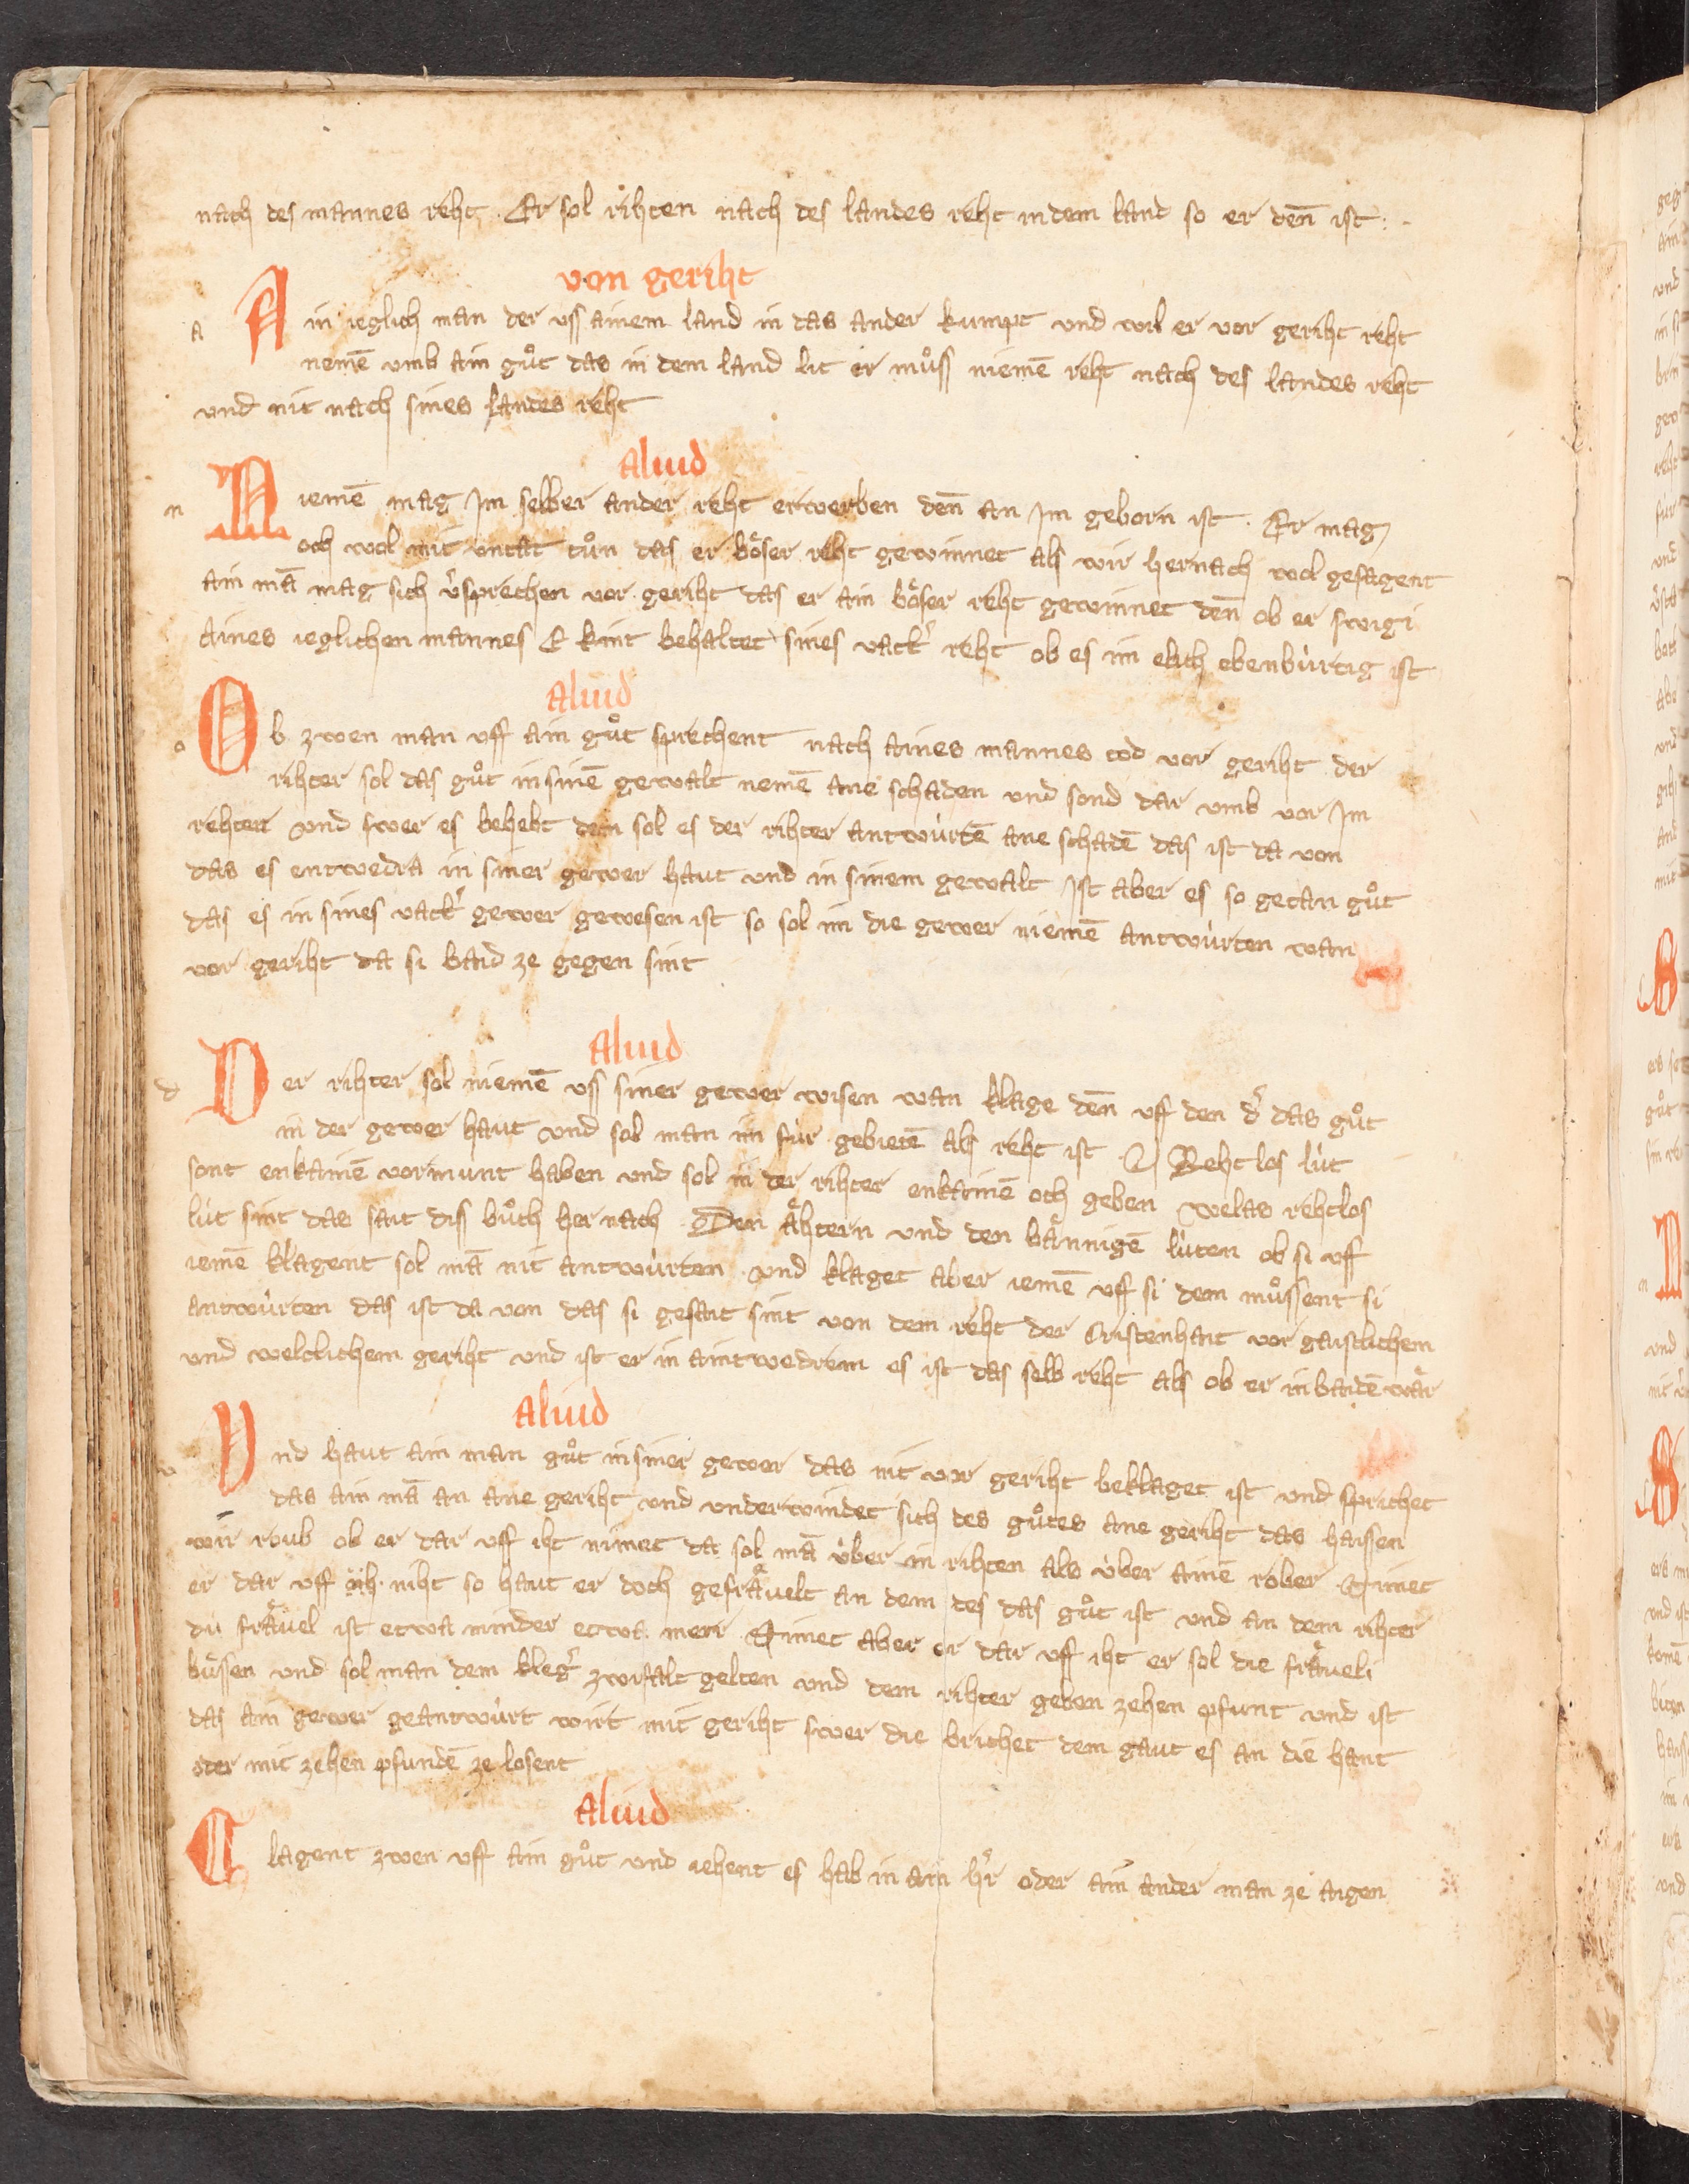 nach des mannes reht Er sol rihten nach des landes reht in dem land so er deñ ist
von geriht
Ain ieglich man der uss ainem land in das ander kumpt und wil er vor geriht reht
nemē umb ain gůt das in dem land lit er můss niemē reht nach des landes reht
und nit nach sines landes reht
Aliud
Niemē mag Jm selber ander reht erwerben deñ an Jm geborn ist . Er mag
och wol mit untat tůn das er böser reht gewinnet als wir hernach wol gesagent
ain mā mag sich v̓sprechen vor geriht das er ain böser reht gewinnet deñ ob er swigi
Aines ieglichen mannes E kint behaltet sines vatt̓ reht ob es im elich ebenbùrtig ist
Aliud
Ob zwen man uff ain gůt sprechent nach aines mannes tod vor geriht der
rihter sol das gůt in sinē gewalt nemē ane schaden und sond dar umb vor Jm
rehten und swer es behebt dem sol es der rihter antwùrtē ane schadē das ist da von
das es entwedra in siner gewer haut und in sinem gewalt Jst aber es so getan gůt
das es in sines vatt̓ gewer gewesen ist so sol im die gewer niemē antwùrten wan
vor geriht da si baid ze gegen sint
Aliud
Der rihter sol niemē uss siner gewer wisen wan klage deñ uff den d̓ das gůt
in der gewer haut und sol man im fùr gebietē als reht ist Reht los lùt
sont enkainē vormunt haben und sol in der rihter enkainē och geben welas rehtlos
lùt sint das sait diss bůch her nach Den ähtern und den bännigē lùten ob si uff
iemē klagent sol mā nit antwùrten und klaget aber iemē uff si dem můssent si
antwùrten das ist da von das si gesait sint von dem reht der Cristenhait vor gaistlichem
und weltlichem geriht und ist er in aintwedrem es ist das selb reht als ob er in baidē wär
Aliud
Und haut ain man gůt in siner gewer das nit vor geriht beklaget ist und sprichet
das ain mā an ane geriht und underwindet sich des gůtes ane geriht das haissen
wir roub ob er dar uff iht nimet da sol mā ùber in rihten als ùber ainē rober Nimet
er dar uff niht so haut er doch gefräuelt an dem des das gůt ist und an dem rihter
du fräuel ist etwa minder etwa meri Nimet aber er dar uff iht er sol die fräueli
bůssen und sol man dem kleg̓ zwifalt gelten und dem rihter geben zehen pfunt und ist
das ain gewer geantwùrt wirt mit geriht swer die brichet dem gaut es an die hant
oder mit zehen pfundē ze losent
Aliud
Clagent zwen uff ain gůt und iehent es hab in ain h̓r oder ain ander man ze aigen